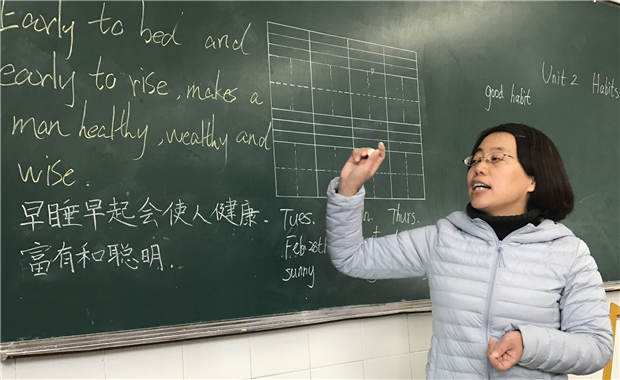 Early to bed and
early to rise, makes a
man healthy, wealthy and
wise.
早睡早起会使人健康.
富有和聪明.
Tues.
Thurs.
sunny
good habit
Unit 2 Habits